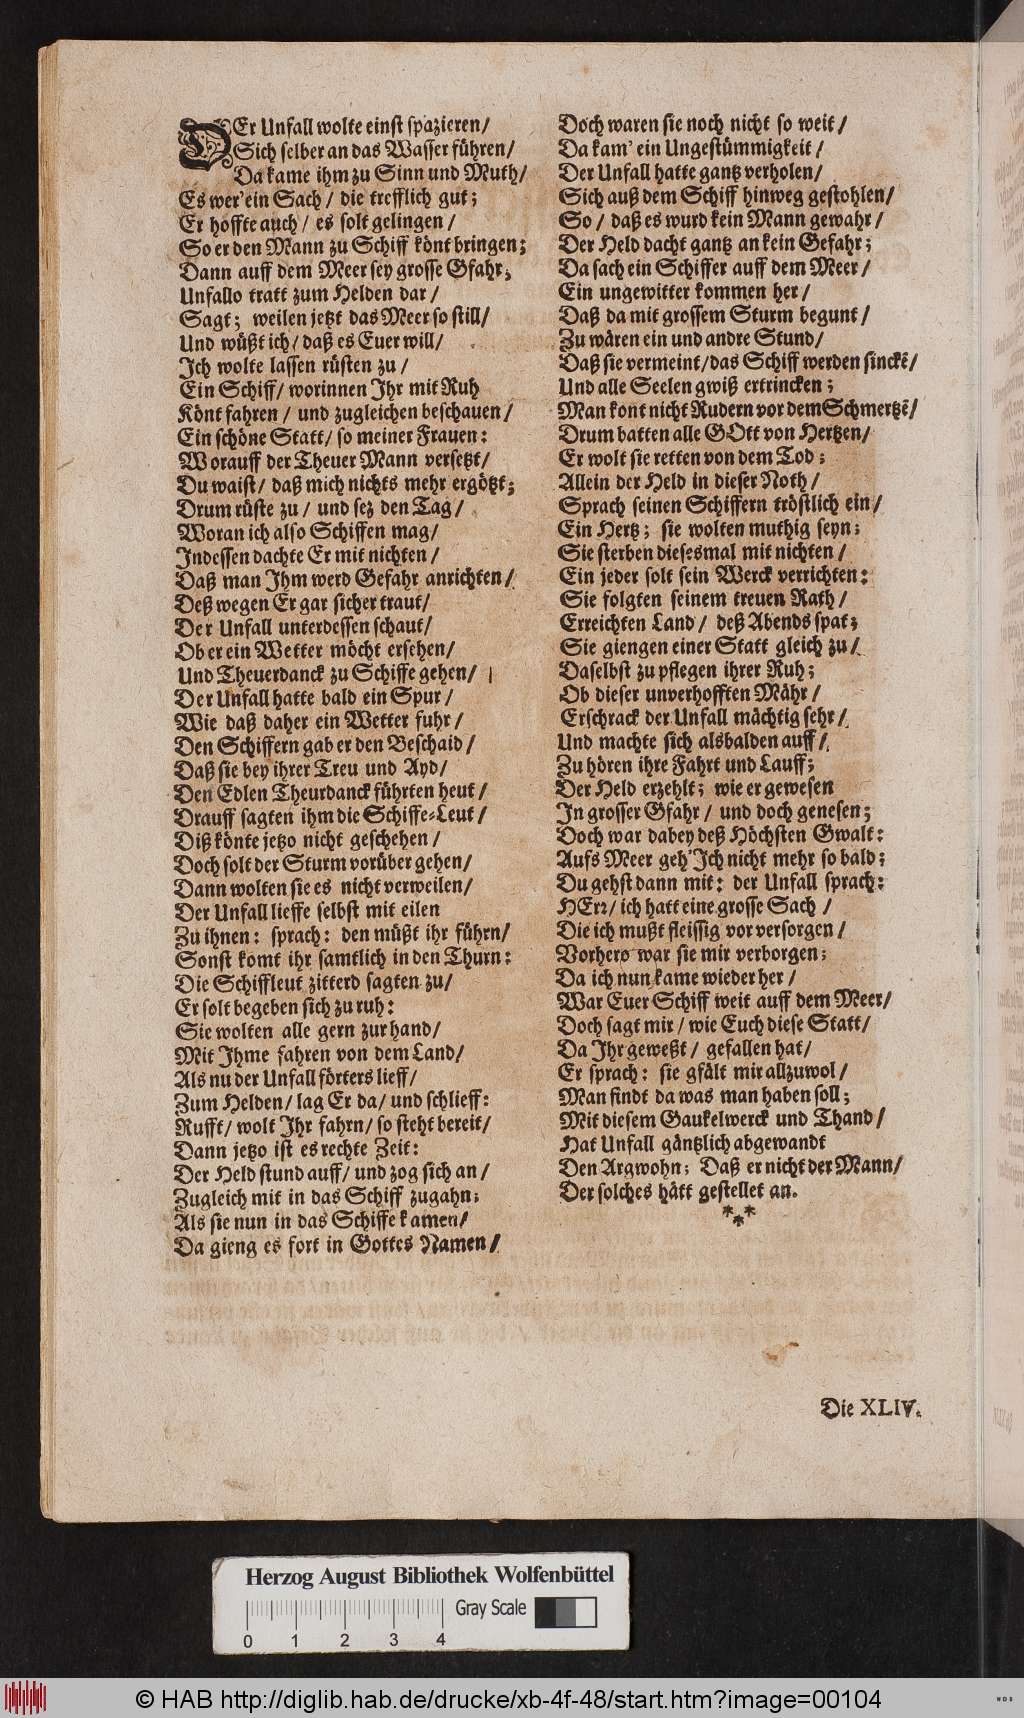 DEr Unfall wolte einst spazieren/
Sich selber an das Wasser führen/
Da kame ihm zu Sinn und Muth/
Es wer' ein Sach/ die trefflich gut;
Er hoffte auch/ es solt gelingen/
So er den Mann zu Schiff könt bringen;
Dann auff dem Meer sey grosse Gfahr;
Unfallo tratt zum Helden dar/
Sagt; weilen jetzt das Meer so still/
Und wüßt ich/ daß es Euer will/
Ich wolte lassen rüsten zu/
Ein Schiff/ worinnen Ihr mit Ruh
Könt fahren/ und zugleichen beschauen/
Ein schöne Statt/ so meiner Frauen:
Worauff der Theuer Mann versetzt/
Du waist/ daß mich nichts mehr ergötzt;
Drum rüste zu/ und sez den Tag/
Woran ich also Schiffen mag/
Indessen dachte Er mit nichten/
Daß man Ihm werd Gefahr anrichten/
Deßwegen Er gar sicher traut/
Der Unfall unterdessen schaut/
Ob er ein Wetter möcht ersehen/
Und Theuerdanck zu Schiffe gehen/
Der Unfall hatte bald ein Spur/
Wie daß daher ein Wetter fuhr/
Den Schiffern gab er den Beschaid/
Daß sie bey ihrer Treu und Ayd/
Den Edlen Theurdanck führten heut/
Drauff sagten ihm die Schiffe-Leut/
Diß könte jetzo nicht geschehen/
Doch solt der Sturm vorüber gehen/
Dann wolten sie es nicht verweilen/
Der Unfall lieffe selbst mit eilen
Zu ihnen: sprach: den müßt ihr führn/
Sonst komt ihr samtlich in den Thurn:
Die Schiffleut zitterd sagten zu/
Er solt begeben sich zu ruh:
Sie wolten alle gern zur hand/
Mit Ihme fahren von dem Land/
Als nu der Unfall förters lieff/
Zum Helden/ lag Er da/ und schlieff:
Rufft/ wolt Ihr fahrn/ so steht bereit/
Dann jetzo ist es rechte Zeit:
Der Held stund auff/ und zog sich an/
Zugleich mit in das Schiff zugahn;
Als sie nun in das Schiffe kamen/
Da gieng es fort in Gottes Namen/
Doch waren sie noch nicht so weit/
Da kam' ein Ungestümmigkeit/
Der Unfall hatte gantz verholen/
Sich auß dem Schiff hinweg gestohlen/
So/ daß es wurd kein Mann gewahr/
Der Held dacht gantz an kein Gefahr;
Da sach ein Schiffer auff dem Meer/
Ein ungewitter kommen her/
Daß da mit grossem Sturm begunt/
Zu wären ein und andre Stund/
Daß sie vermeint/ das Schiff werden sinckẽ/
Und alle Seelen gwiß ertrincken;
Man kont nicht Rudern vor dem Schmertzẽ/
Drum batten alle GOtt von Hertzen/
Er wolt sie retten von dem Tod;
Allein der Held in dieser Noth/
Sprach seinen Schiffern tröstlich ein/
Ein Hertz; sie wolten muthig seyn;
Sie sterben diesesmal mit nichten/
Ein jeder solt sein Werck verrichten:
Sie folgten seinem treuen Rath/
Erreichten Land/ deß Abends spat;
Sie giengen einer Statt gleich zu/
Daselbst zu pflegen ihrer Ruh;
Ob dieser unverhofften Mähr/
Erschrack der Unfall mächtig sehr/
Und machte sich alsbalden auff/
Zu hören ihre Fahrt und Lauff;
Der Held erzehlt; wie er gewesen
In grosser Gfahr/ und doch genesen;
Doch war dabey deß Höchsten Gwalt:
Aufs Meer geh' Ich nicht mehr so bald;
Du gehst dann mit: der Unfall sprach:
HErr/ ich hatt eine grosse Sach/
Die ich mußt fleissig vor versorgen/
Vorhero war sie mir verborgen;
Da ich nun kame wieder her/
War Euer Schiff weit auff dem Meer/
Doch sagt mir/ wie Euch diese Statt/
Da Ihr geweßt/ gefallen hat/
Er sprach: sie gfält mir allzuwol/
Man findt da was man haben soll;
Mit diesem Gaukelwerck und Thand/
Hat Unfall gäntzlich abgewandt
Den Argwohn; Daß er nicht der Mann/
Der solches hätt gestellet an.
***
Die XLIV.
Herzog August Bibliothek Wolfenbüttel
Gray Scale
0 1 2 3 4
© HAB http://diglib.hab.de/drucke/xb-4f-48/start.htm?image=00104